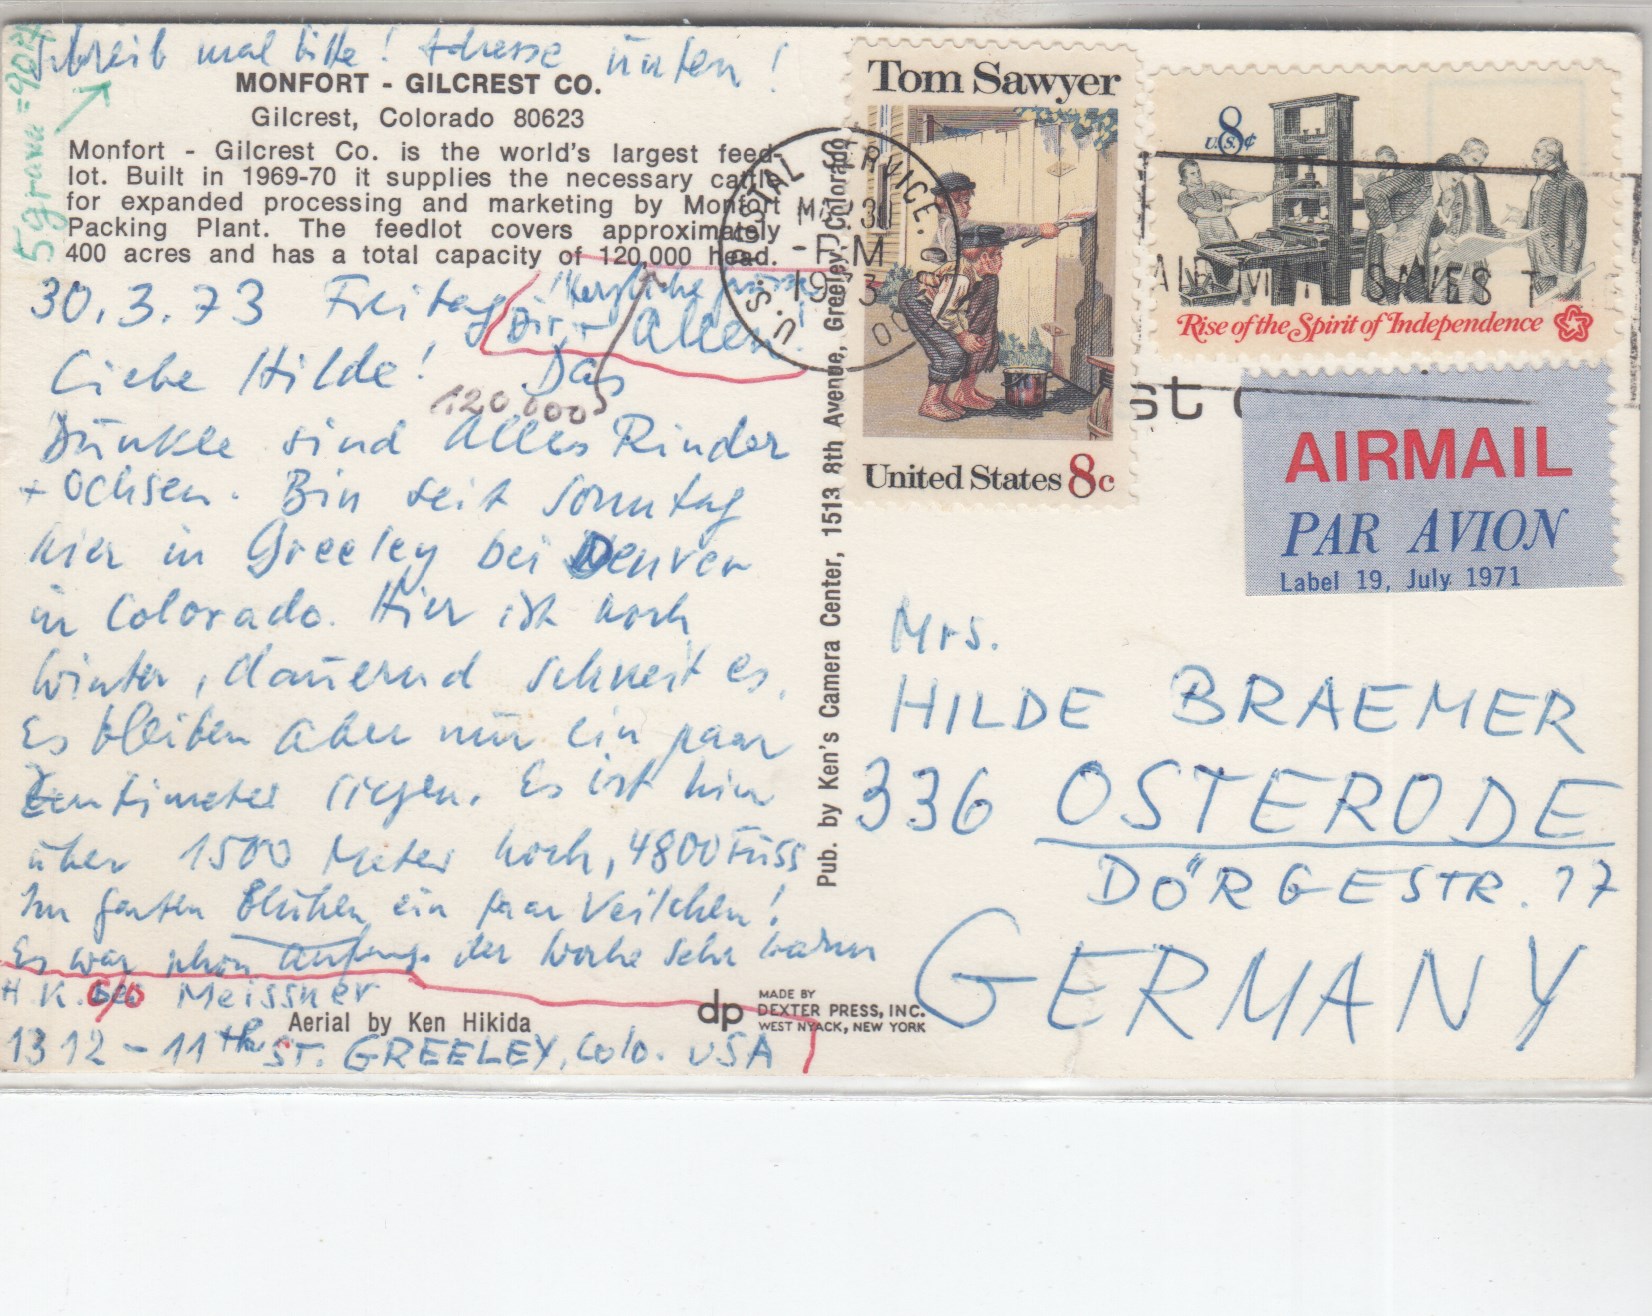 Schreib mal bitte! Adresse unten!
5 gramm = 90 Pf
MONFORT - GILCREST CO.
Gilcrest, Colorado 80623
Monfort - Gilcrest Co. is the world's largest feed-
lot. Built in 1969-70 it supplies the necessary cattle
for expanded processing and marketing by Monfort
Packing Plant. The feedlot covers approximately
400 acres and has a total capacity of 120,000 head.
30.3.73 Freitag
Herzliche Grüsse
Dir + Allen!
Liebe Hilde! Das
120 000
Dunkle sind alles Rinder
+ Ochsen. Bin seit Sonntag
hier in Greeley bei Denver
in Colorado. Hier ist noch
Winter, dauernd schneit es.
Es bleiben aber nur ein paar
Zentimeter liegen. Es ist hier
über 1500 Meter hoch, 4800 Fuss
Im Garten blühen ein paar Veilchen!
Es war schon Anfang der Woche sehr warm
H.K. c/o Meissner
Aerial by Ken Hikida
1312 - 11th ST. GREELEY, Colo. USA
Pub. by Ken's Camera Center, 1513 8th Avenue, Greeley, Colorado
dp
MADE BY
DEXTER PRESS, INC.
WEST NYACK, NEW YORK
Tom Sawyer
United States 8c
U.S. POSTAL SERVICE
MAR 31
-PM
1973
8
U.S. ¢
AIR MAIL SAVES T
Rise of the Spirit of Independence
st
AIRMAIL
PAR AVION
Label 19, July 1971
Mrs.
HILDE BRAEMER
336 OSTERODE
DÖRGESTR. 17
GERMANY